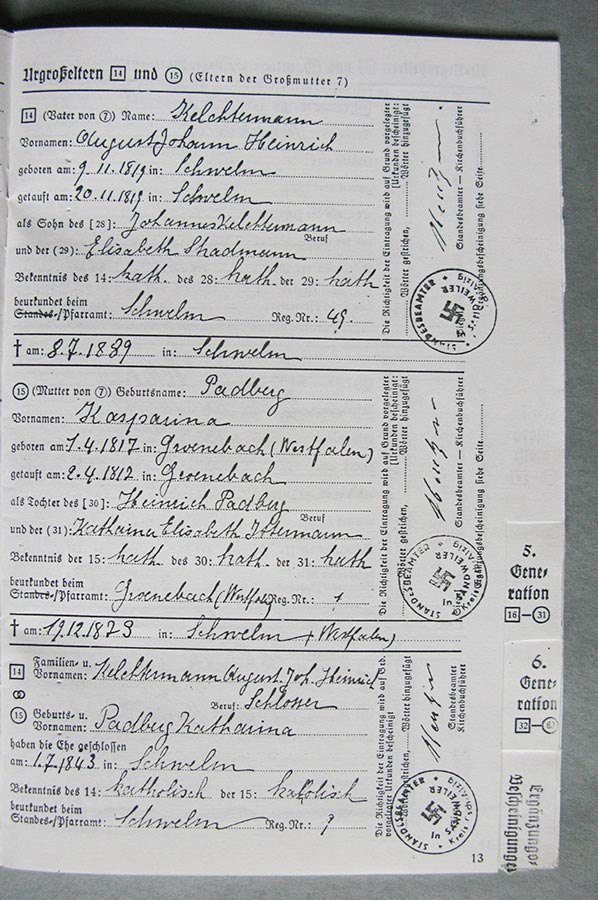 Urgroßeltern 14 und 15 (Eltern der Großmutter 7)
14 (Vater von 7) Name: Kelchtermann
Vornamen: August Johann Heinrich
geboren am: 9.11.1819 in: Schwelm
getauft am: 20.11.1819 in: Schwelm
als Sohn des [28]: Johannes Kelchtermann
Beruf
und der (29): Elisabeth Stadmann
Bekenntnis des 14: kath. des 28: kath. der 29: kath
beurkundet beim
Standes-/Pfarramt: Schwelm Reg.Nr.: 49.
† am: 8.7.1889 in: Schwelm
Die Richtigkeit der Eintragung wird auf Grund vorgelegter
Urkunden bescheinigt:
Wörter gestrichen, Wörter hinzugefügt
Standesbeamter – Kirchenbuchführer
siehe Seite
STANDESBEAMTER
in SANDWEILER
15 (Mutter von 7) Geburtsname: Padberg
Vornamen: Kasparina
geboren am: 1.4.1817 in: Groenebach (Westfalen)
getauft am: 2.4.1812 in: Groenebach
als Tochter des [30]: Heinrich Padberg
Beruf
und der (31): Katharina Elisabeth
Bekenntnis der 15: kath. des 30: kath. der 31: kath
beurkundet beim
Standes-/Pfarramt: Groenebach (Westfal) Reg.Nr.: 1
† am: 19.12.1873 in: Schwelm (Westfalen)
Die Richtigkeit der Eintragung wird auf Grund vorgelegter
Urkunden bescheinigt:
Wörter gestrichen, Wörter hinzugefügt
Standesbeamter – Kirchenbuchführer
siehe Seite
STANDESBEAMTER
in SANDWEILER
14 Familien- u.
Vornamen: Kelchtermann August. Joh. Heinrich
Beruf: Schlosser
15 Geburts- u.
Vornamen: Padberg Katharina
haben die Ehe geschlossen
am: 1.7.1843 in: Schwelm
Bekenntnis des 14: katholisch der 15: katolisch
beurkundet beim
Standes-/Pfarramt: Schwelm Reg.Nr.: ?
Die Richtigkeit der Eintragung wird auf Grund der
vorgelegten Urkunden bescheinigt
Wörter gestrichen, Wörter hinzugefügt
Standesbeamter
Kirchenbuchführer
STANDESBEAMTER
in SANDWEILER
13
5.
Gene-
ration
16–31
6.
Gene-
ration
32–63
Ergänzungs-
Bescheinigungen